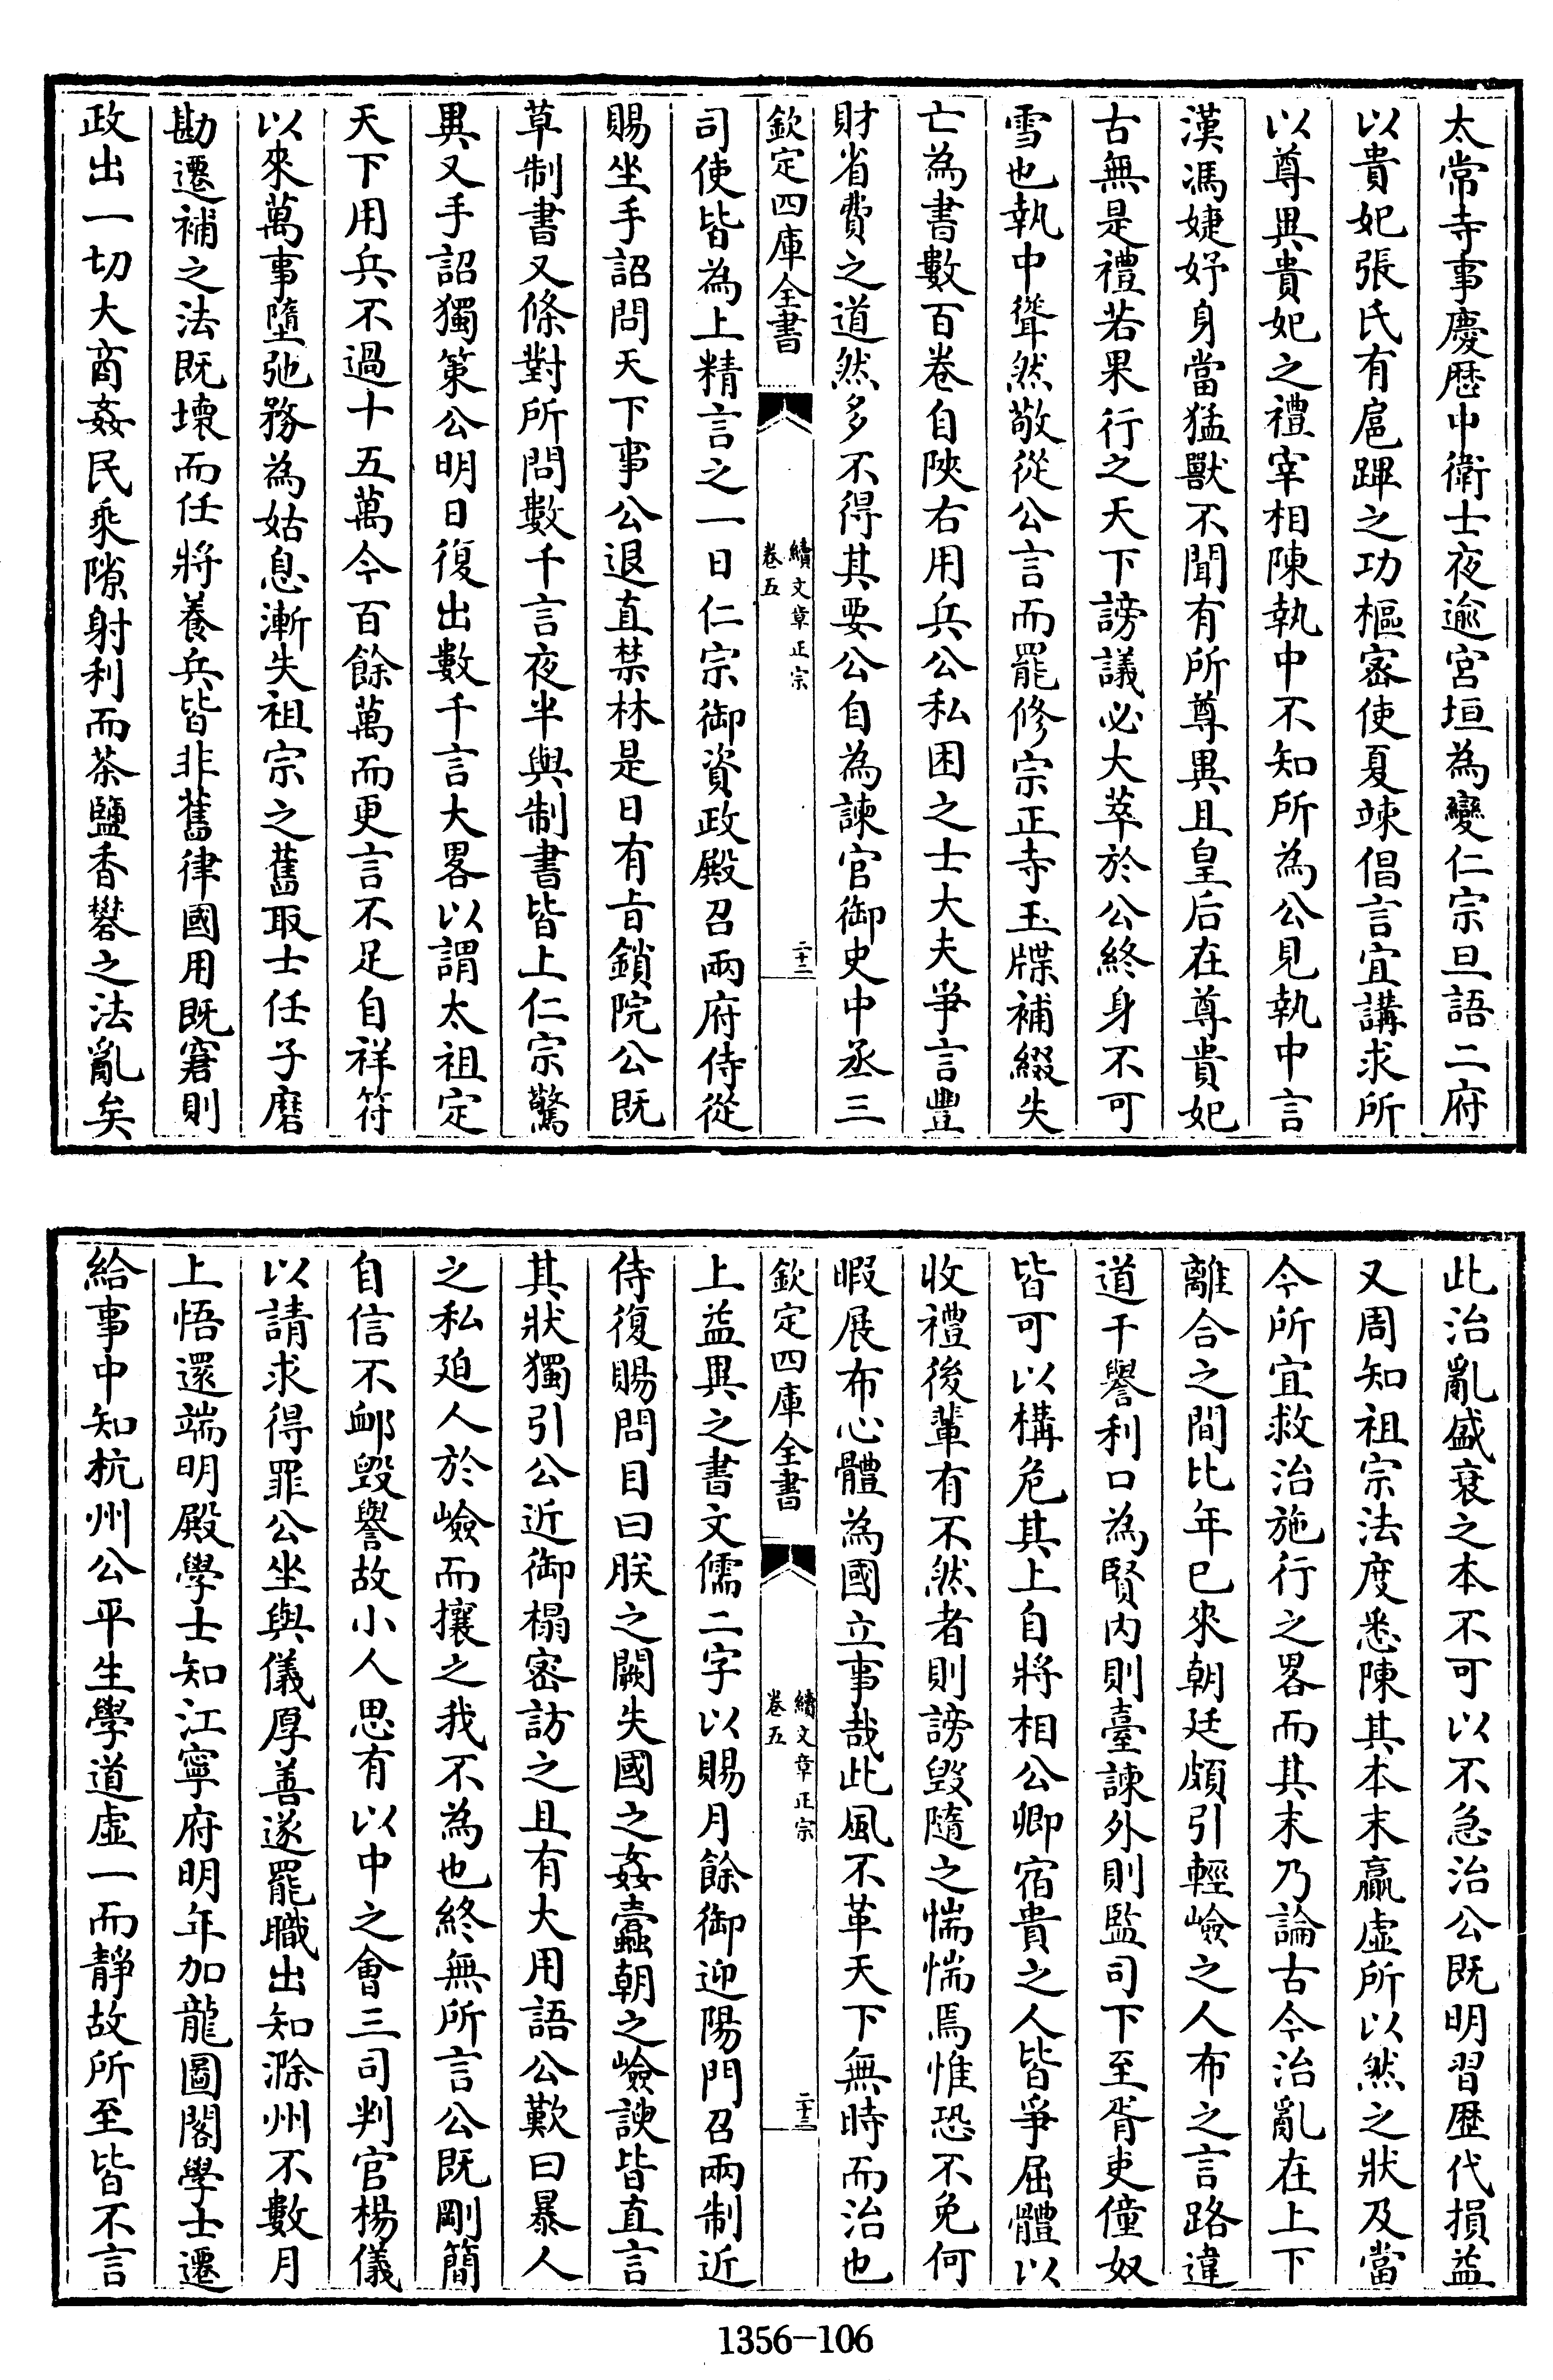 太常寺事慶歴中衛士夜逾宮垣為變仁宗旦語二府
以貴妃張氏有扈蹕之功樞密使夏竦倡言宜講求所
以尊異貴妃之禮宰相陳執中不知所為公見執中言
漢馮婕妤身當猛獸不聞有所尊異且皇后在尊貴妃
古無是禮若果行之天下謗議必大萃於公終身不可
雪也執中聳然敬從公言而罷修宗正寺玉牒補綴失
亡為書數百卷自陜右用兵公私困之士大夫爭言豐
財省費之道然多不得其要公自為諫官御史中丞三
欽定四庫全書
續文章正宗
卷五
二十二
司使皆為上精言之一日仁宗御資政殿召兩府侍從
賜坐手詔問天下事公退直禁林是日有旨鎖院公既
草制書又條對所問數千言夜半與制書皆上仁宗驚
異又手詔獨策公明日復出數千言大畧以謂太祖定
天下用兵不過十五萬今百餘萬而更言不足自祥符
以來萬事墮弛務為姑息漸失祖宗之舊取士任子磨
勘遷補之法既壞而任將養兵皆非舊律國用既窘則
政出一切大商姦民乘隙射利而茶鹽香礬之法亂矣
此治亂盛衰之本不可以不急治公既明習歴代損益
又周知祖宗法度悉陳其本末贏虛所以然之狀及當
今所宜救治施行之畧而其末乃論古今治亂在上下
離合之間比年已來朝廷頗引輕嶮之人布之言路違
道干譽利口為賢内則臺諫外則監司下至胥吏僮奴
皆可以構危其上自將相公卿宿貴之人皆爭屈體以
收禮後輩有不然者則謗毀隨之惴惴焉惟恐不免何
暇展布心體為國立事哉此風不革天下無時而治也
欽定四庫全書
續文章正宗
卷五
二十三
上益異之書文儒二字以賜月餘御迎陽門召兩制近
侍復賜問目曰朕之闕失國之姦蠧朝之嶮諛皆直言
其狀獨引公近御榻密訪之且有大用語公歎曰暴人
之私廹人於嶮而攘之我不為也終無所言公既剛簡
自信不䘏毀譽故小人思有以中之會三司判官楊儀
以請求得罪公坐與儀厚善遂罷職出知滁州不數月
上悟還端明殿學士知江寧府明年加龍圖閣學士遷
給事中知杭州公平生學道虛一而靜故所至皆不言
1356-106